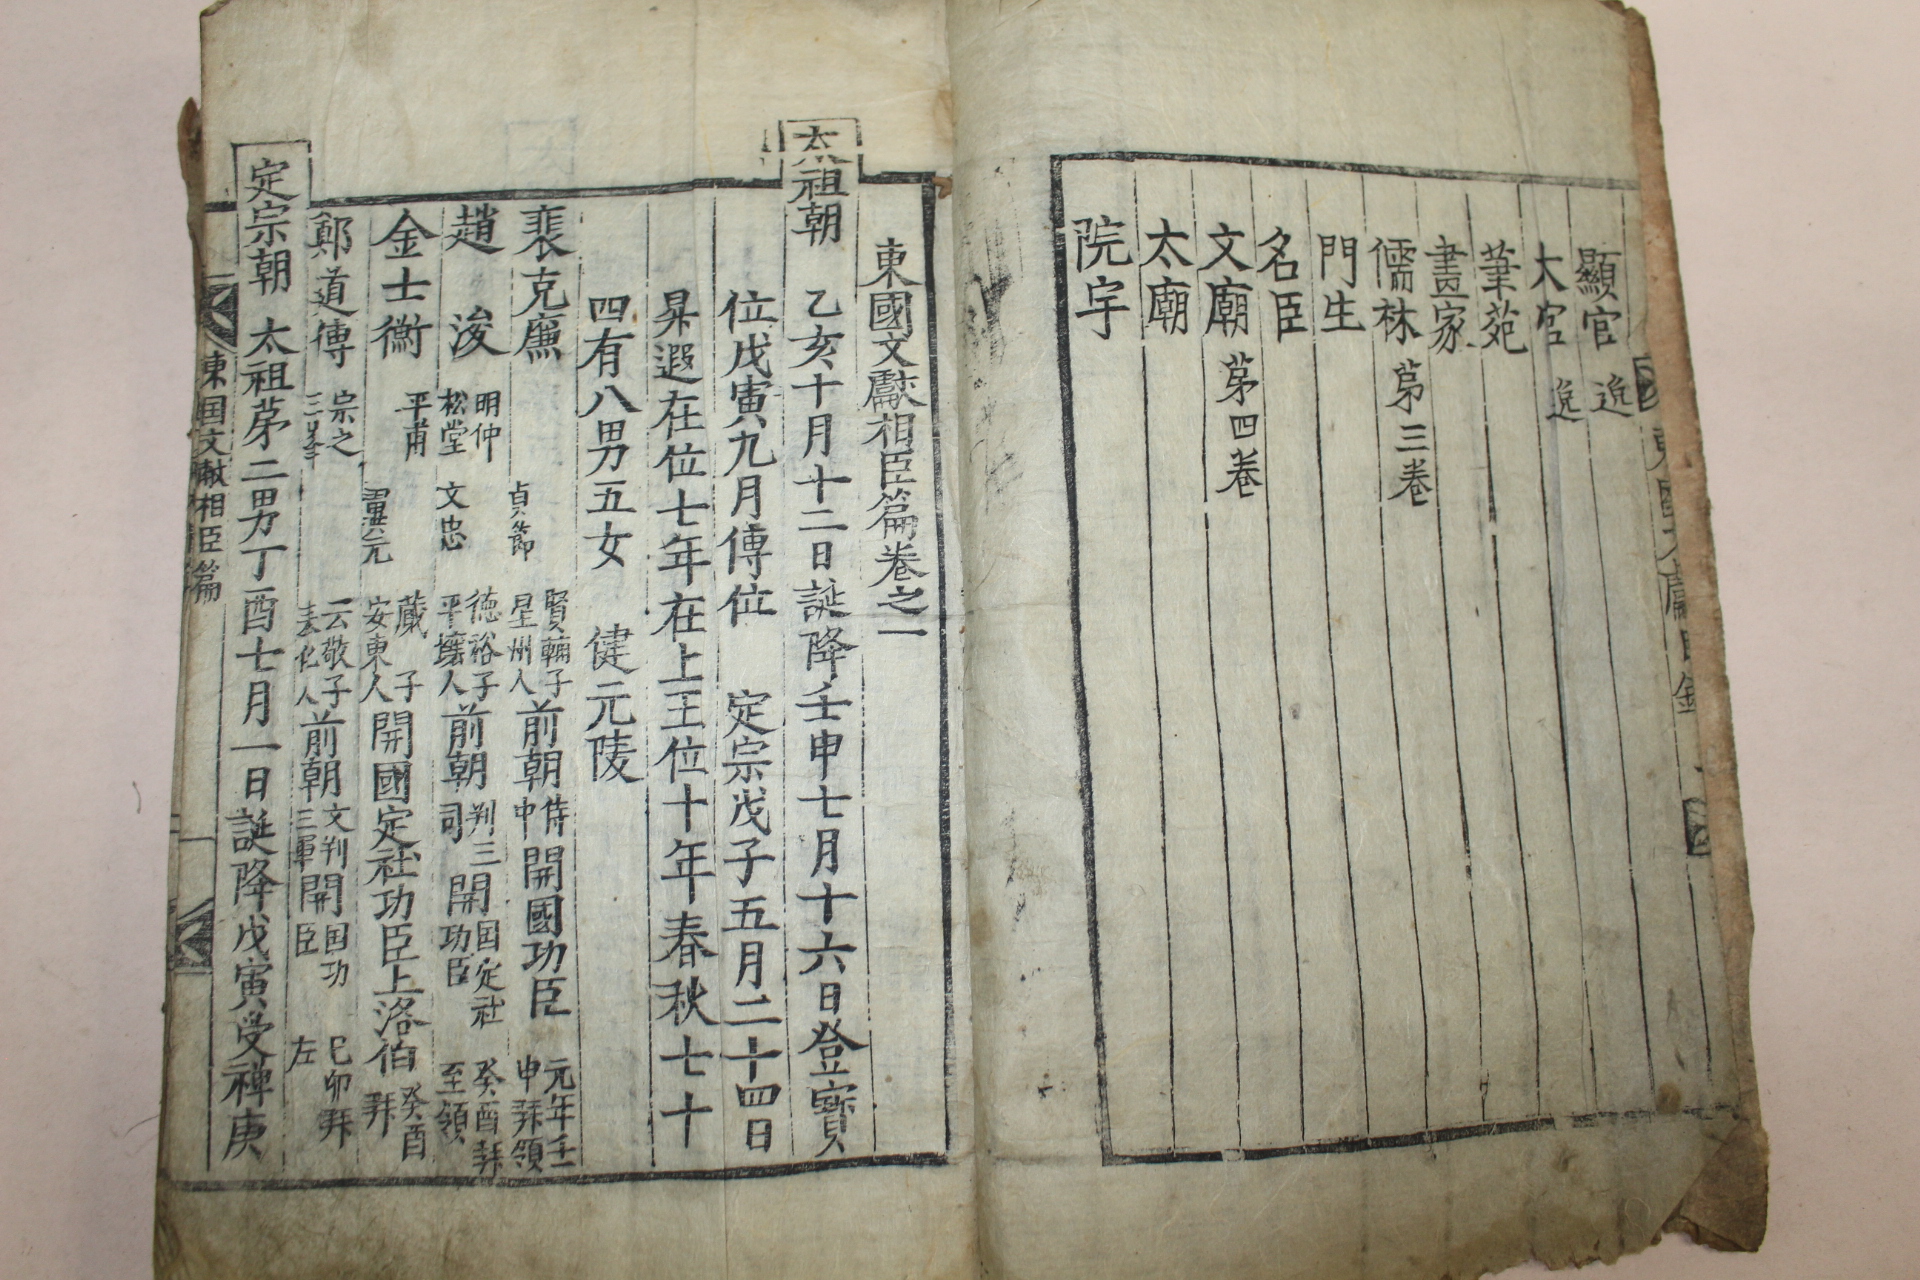 顯官 逸
大官 逸
筆苑
畫家
儒林 苐三巻
門生
名臣
文廟 苐四巻
太廟
院宇
東國文獻相臣篇巻之一
太祖朝 乙亥十月十二日誕降壬申七月十六日登寶
位戊寅九月傳位 定宗戊子五月二十四日
昇遐在位七年在上王位十年春秋七十
四有八男五女 健元陵
裴克廉 貞節 賢輔子 星州人 前朝侍中 開國功臣 元年壬申拜領
趙 浚 明仲 松堂 文忠 德裕子 平壤人 前朝判三司 開国定社功臣 癸酉拜至領
金士衡 平甫 翼元 蕆子 安東人 開國定社功臣上洛伯 癸酉拜
鄭道傳 宗之 三峯 云敬子 奉化人 前朝文判三軍 開国功臣 己卯拜左
定宗朝 太祖苐二男丁酉七月一日誕降戊寅受禅庚
東国文献相臣篇